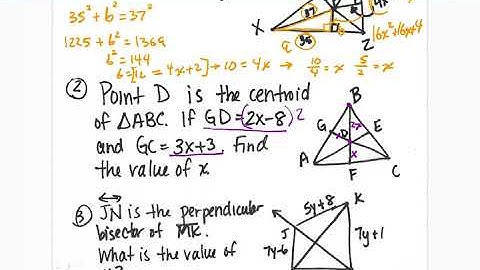 35² + b² = 37²
1225 + b² = 1369
b² = 144
b = 12 = 4x+2 → 10 = 4x → 10/4 = x 5/2 = x
X
37
35
a
Z
4x
16x²+16x+4
② Point D is the centroid
of △ABC. If GD=(2x-8)2
and GC=3x+3. Find
the value of x.
B
G
E
D
2x
x
A
F
C
③ JN is the perpendicular
bisector of MK.
What is the value of
K
5y+8
J
7y-6
7y+1